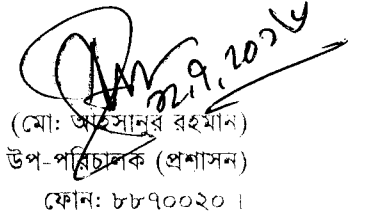 ২২.৭.২০১৫
(মো: আহসানুর রহমান)
উপ-পরিচালক (প্রশাসন)
ফোন: ৮৮৭০০২০।